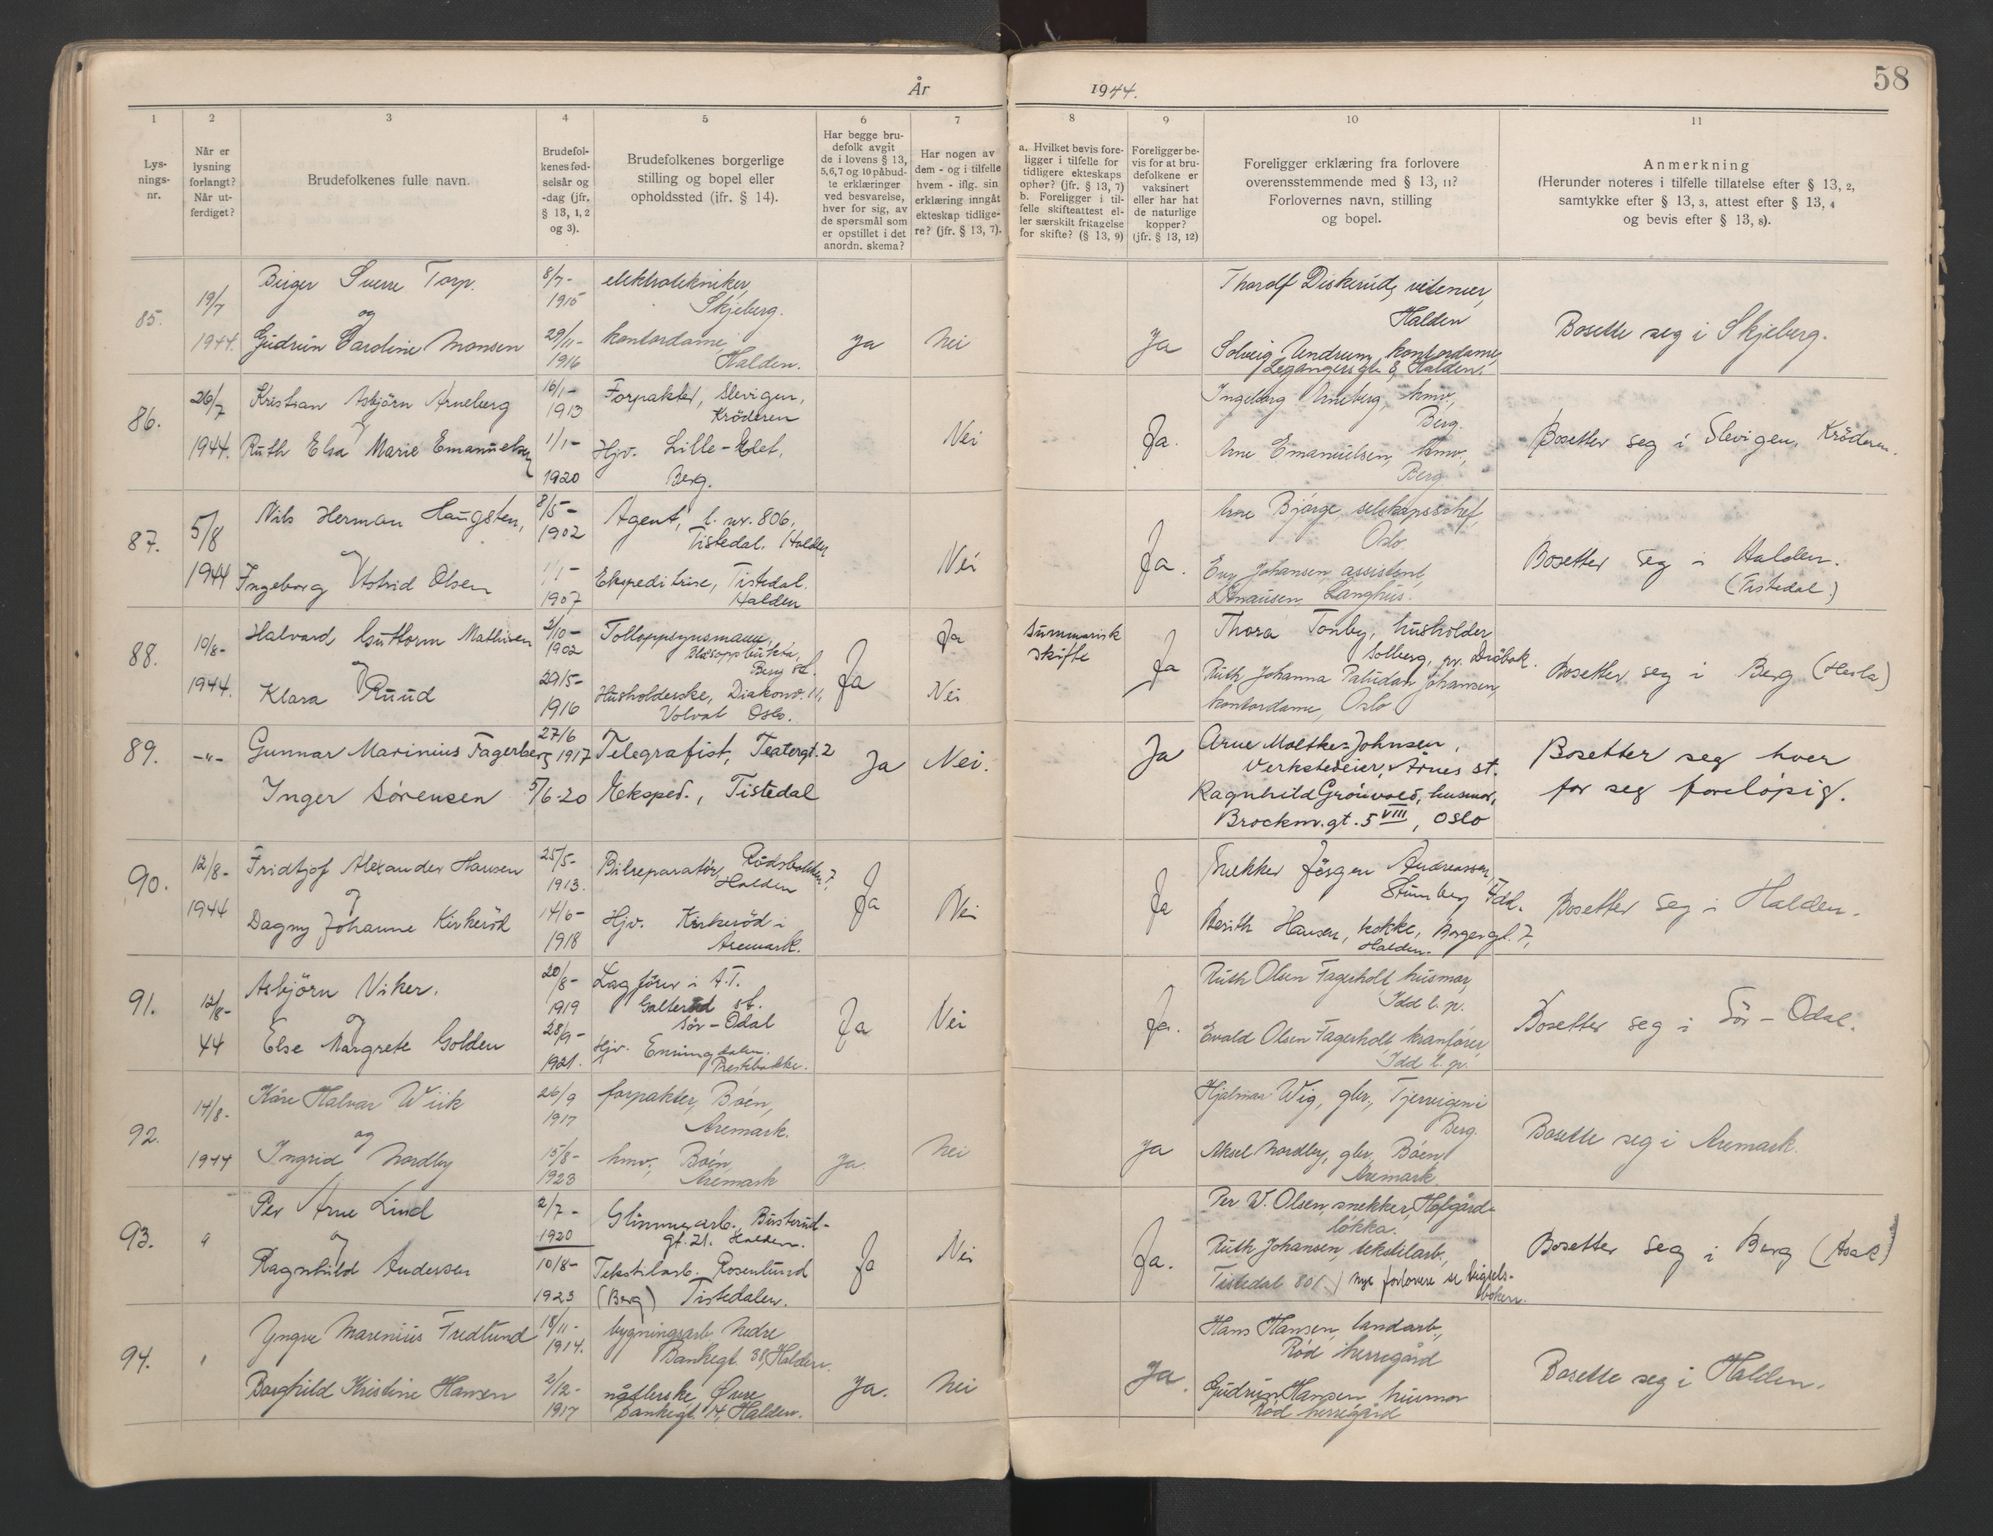 År
1944.
58
1
2
3
4
5
6
7
8
9
10
11
Lys-
nings-
nr.
Når er
lysning
forlangt?
Når ut-
ferdiget?
Brudefolkenes fulle navn.
Brudefol-
kenes fød-
selsår og
-dag (jfr.
§ 13, 1, 2
og 3).
Brudefolkenes borgerlige
stilling og bopel eller
opholdssted (jfr. § 14).
Har begge bru-
defolk avgit
de i lovens § 13,
5,6,7 og 10 påbud-
te erklæringer
ved besvarelse,
hver for sig, av
de spørsmål som
er opstillet i det
anordn. skema?
Har nogen av
dem - og i tilfelle
hvem - iflg. sin
erklæring inngåt
ekteskap tidlige-
re? (jfr. § 13, 7).
a. Hvilket bevis fore-
ligger i tilfelle for
tidligere ekteskaps
ophør? (jfr. § 13, 7)
b. Foreligger i til-
felle skifteattest el-
ler særskilt fritagelse
for skifte? (§ 13, 9)
Foreligger be-
vis for at bru-
defolkene er
vaksinert
eller har hat
de naturlige
kopper?
(jfr. § 13, 12)
Foreligger erklæring fra forlovere
overensstemmende med § 13, 11?
Forlovernes navn, stilling
og bopel.
Anmerkning
(Herunder noteres i tilfelle tillatelse efter § 13, 2,
samtykke efter § 13, 3, attest efter § 13, 4
og bevis efter § 13, 8).
85.
19/7
1944.
Birger Sverre Torp.
og
Gudrun Caroline Monsen
8/7-
1915
29/11-
1916
elektrotekniker,
Skjeberg.
kontordame
Halden.
Ja
Nei
Ja
Thorolf Diskerud,
Halden
Solveig Undrum, kontordame,
Legangersgt 8, Halden.
Bosette seg i Skjeberg.
86.
26/7
1944.
Kristian Asbjörn Arneberg
og
Ruth Elsa Marie Emanuelsen
16/1-
1913
1/1-
1920
Forpakter, Slevigen,
Kröderen
Hjv. Lille-Edet,
Berg.
Nei
Ja.
Ingeborg Arneberg, hmv.,
Berg.
Arne Emanuelsen, hmv.,
Berg
Bosetter seg i Slevigen, Kröderen.
87.
5/8
1944
Nils Herman Haugsten,
og
Ingeborg Astrid Olsen
8/5-
1902
1/1-
1907
Agent, l. nr. 806,
Tistedal. Halden
Ekspeditrise, Tistedal.
Halden
Nei
Ja.
Arne Bjørge, selskapssjef,
Oslo.
Johansen, assistent,
Langhus.
Bosetter seg i Halden.
(Tistedal.)
88.
10/8-
1944.
Halvard Guttorm Mathisen
og
Klara Ruud
2/10-
1902
29/5-
1916
Tolloppsynsmann,
Berg st.
Husholderske, Diakonv. 11,
Volvat Oslo.
Ja
Ja
Nei
Summarisk
skifte
Ja
Thora Tonby, husholder
Solberg, pr. Dröbak.
Ruth Johanna Paludan Johansen,
kontordame, Oslo
Bosetter seg i Berg (Hesla)
89.
-"-
Gunnar Marinius Fagerberg
Inger Sørensen
27/6
1917
5/6-20
Telegrafist, Teatergt. 2
Eksped., Tistedal
Ja
Nei.
Ja
Arne Moltke-Johnsen,
Verkstedeier, Årnes st.
Ragnhild Grönvold, husmor,
Brockm.gt. 5 VIII, Oslo
Bosetter seg hver
for seg foreløpig.
90.
12/8-
1944
Fridtjof Alexander Hansen
og
Dagny Johanne Kirkeröd
25/5-
1913.
14/6-
1918
Bilreparatør, Rödsbakken 7,
Halden
Hjv. Kirkeröd i
Aremark.
Ja
Nei
Ja
Snekker Jörgen Andreassen,
Idd.
Berith Hansen, kokke, Borgergt. 7,
Halden.
Bosetter seg i Halden.
91.
12/8-
44
Asbjörn Viker.
og
Else Margrete Golden
20/8-
1919
28/9-
1921.
Lagförer i A.T.
Galterud st.
Sör-Odal
Hjv. Enningdalen.
Prestebakke.
Ja
Nei
Ja.
Ruth Olsen Fagerholt husmor,
Idd l. p.
Evald Olsen Fagerholt kranförer,
Idd l. p.
Bosetter seg i Sör-Odal.
92.
14/8-
1944
Kåre Halvar Wiik
og
Ingrid Nordby
26/9
1917
15/8-
1923
forpakter, Boén,
Aremark.
hmv., Boén,
Aremark
Ja.
Nei
Ja
Hjalmar Wig, gbr., Tjervigen i
Berg.
Aksel Nordby, gbr, Boén,
Aremark.
Bosette seg i Aremark.
93.
"
Per Arne Lind
og
Ragnhild Andersen
2/7-
1920
10/8-
1923
Glimmerarb., Busterud-
gt. 21. Halden.
Tekstilarb. Rosenlund
(Berg) Tistedalen.
Ja
Nei
Ja.
Per W. Olsen, snekker, Hofgård-
løkka.
Ruth Johansen, tekstilarb.,
Tistedal 801.) nye forlovere se vigsels-
boken.
Bosetter seg i Berg (Asak)
94.
"
Yngve Marenius Fredlund
Borghild Kristine Hansen
18/11-
1914.
2/12-
1917
bygningsarb. Nedre
Bankegt. 38, Halden.
nåtlerske, Øvre
Bankegt. 14, Halden.
Ja.
Nei
Ja.
Hans Hansen, landarb.,
Rød herregård
Gudrun Hansen, husmor
Rød herregård
Bosette seg i Halden.